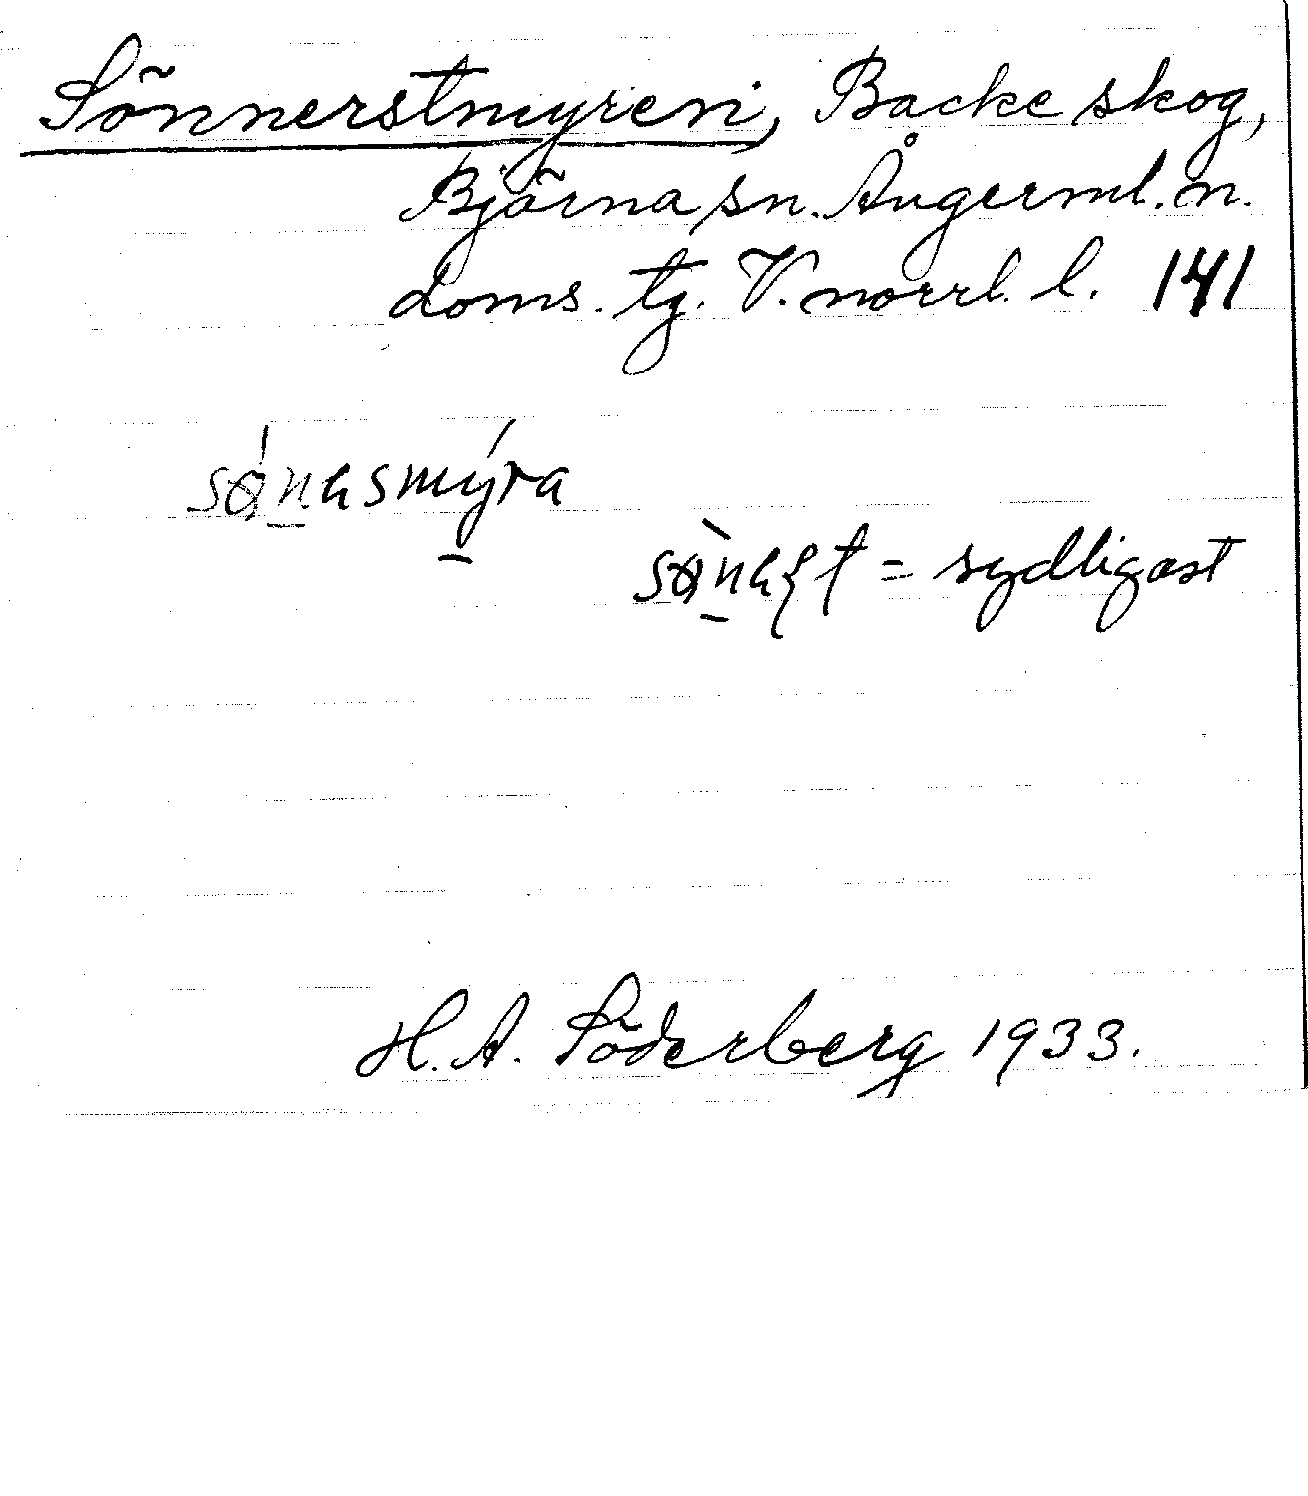 Sönnerstmyren, Backe skog,
Björna sn. Ångerml. n.
doms. tg. V. norrl. l. 141
= sydligast
H. A. Söderberg 1933.